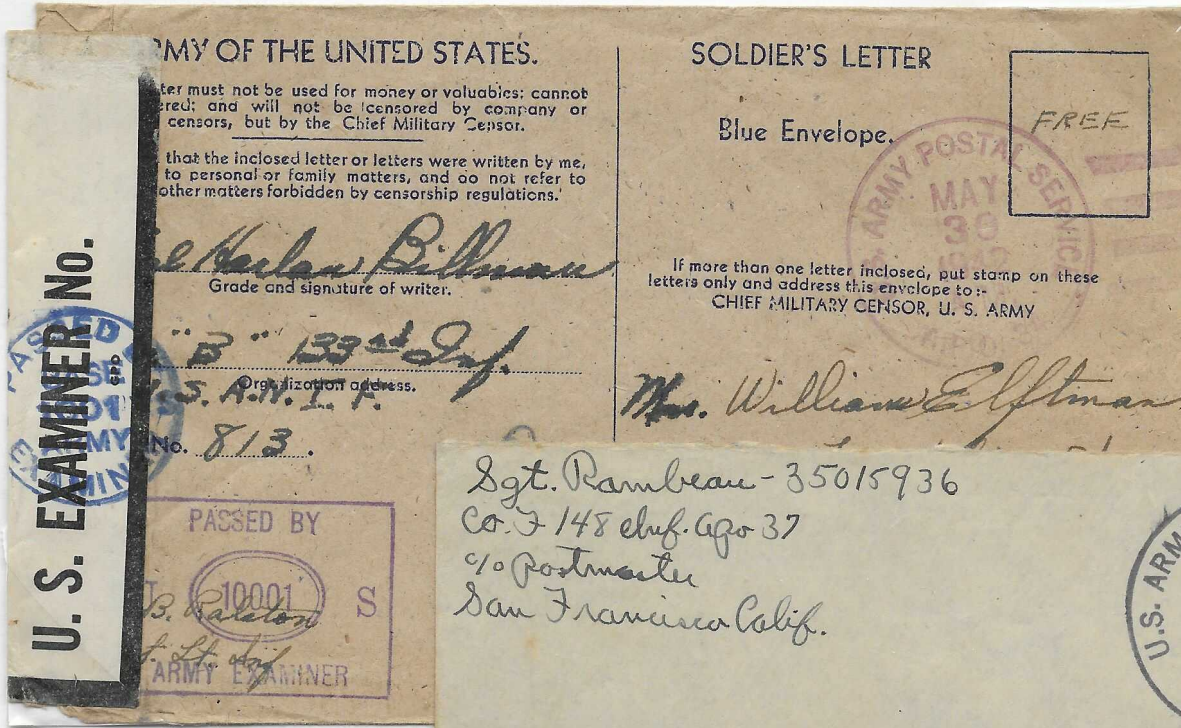 RMY OF THE UNITED STATES.
ter must not be used for money or valuables; cannot
ered; and will not be censored by company or
censors, but by the Chief Military Censor.
that the inclosed letter or letters were written by me,
to personal or family matters, and do not refer to
other matters forbidden by censorship regulations.
Harlan Billman
Grade and signature of writer.
"B" 133rd Inf.
Organization address.
S. A. N. I. F.
No. 813.
SOLDIER'S LETTER
Blue Envelope.
FREE
ARMY POSTAL SERVIC
MAY
30
If more than one letter inclosed, put stamp on these
letters only and address this envelope to:-
CHIEF MILITARY CENSOR, U. S. ARMY
Mrs. William Elftman
U. S. EXAMINER No.
PASSED
ARMY
PASSED BY
10001
S
B. Ralston
Lt. Inf
ARMY EXAMINER
Sgt. Rambeau - 35015936
Co. F 148 Inf. apo 37
c/o Postmaster
San Francisco Calif.
U.S. ARM